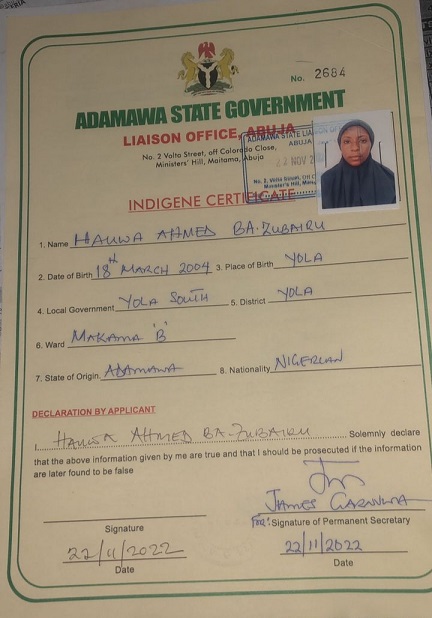 No. 2684
ADAMAWA STATE GOVERNMENT
LIAISON OFFICE, ABUJA
No. 2 Volto Street, off Colorado Close,
Ministers' Hill, Maitama, Abuja
ADAMAWA STATE LIA
ABUJA
22 NOV 2
INDIGENE CERTIFICATE
1. Name HAUWA AHMED BA-ZUBAIRU
2. Date of Birth 18th MARCH 2004 3. Place of Birth YOLA
4. Local Government YOLA SOUTH 5. District YOLA
6. Ward MAKAMA 'B'
7. State of Origin ADAMAWA 8. Nationality NIGERIAN
DECLARATION BY APPLICANT
I, HAUWA AHMED BA-ZUBAIRU Solemnly declare
that the above information given by me are true and that I should be prosecuted if the information
are later found to be false
JAMES
Signature FOR: Signature of Permanent Secretary
22/11/2022 22/11/2022
Date Date